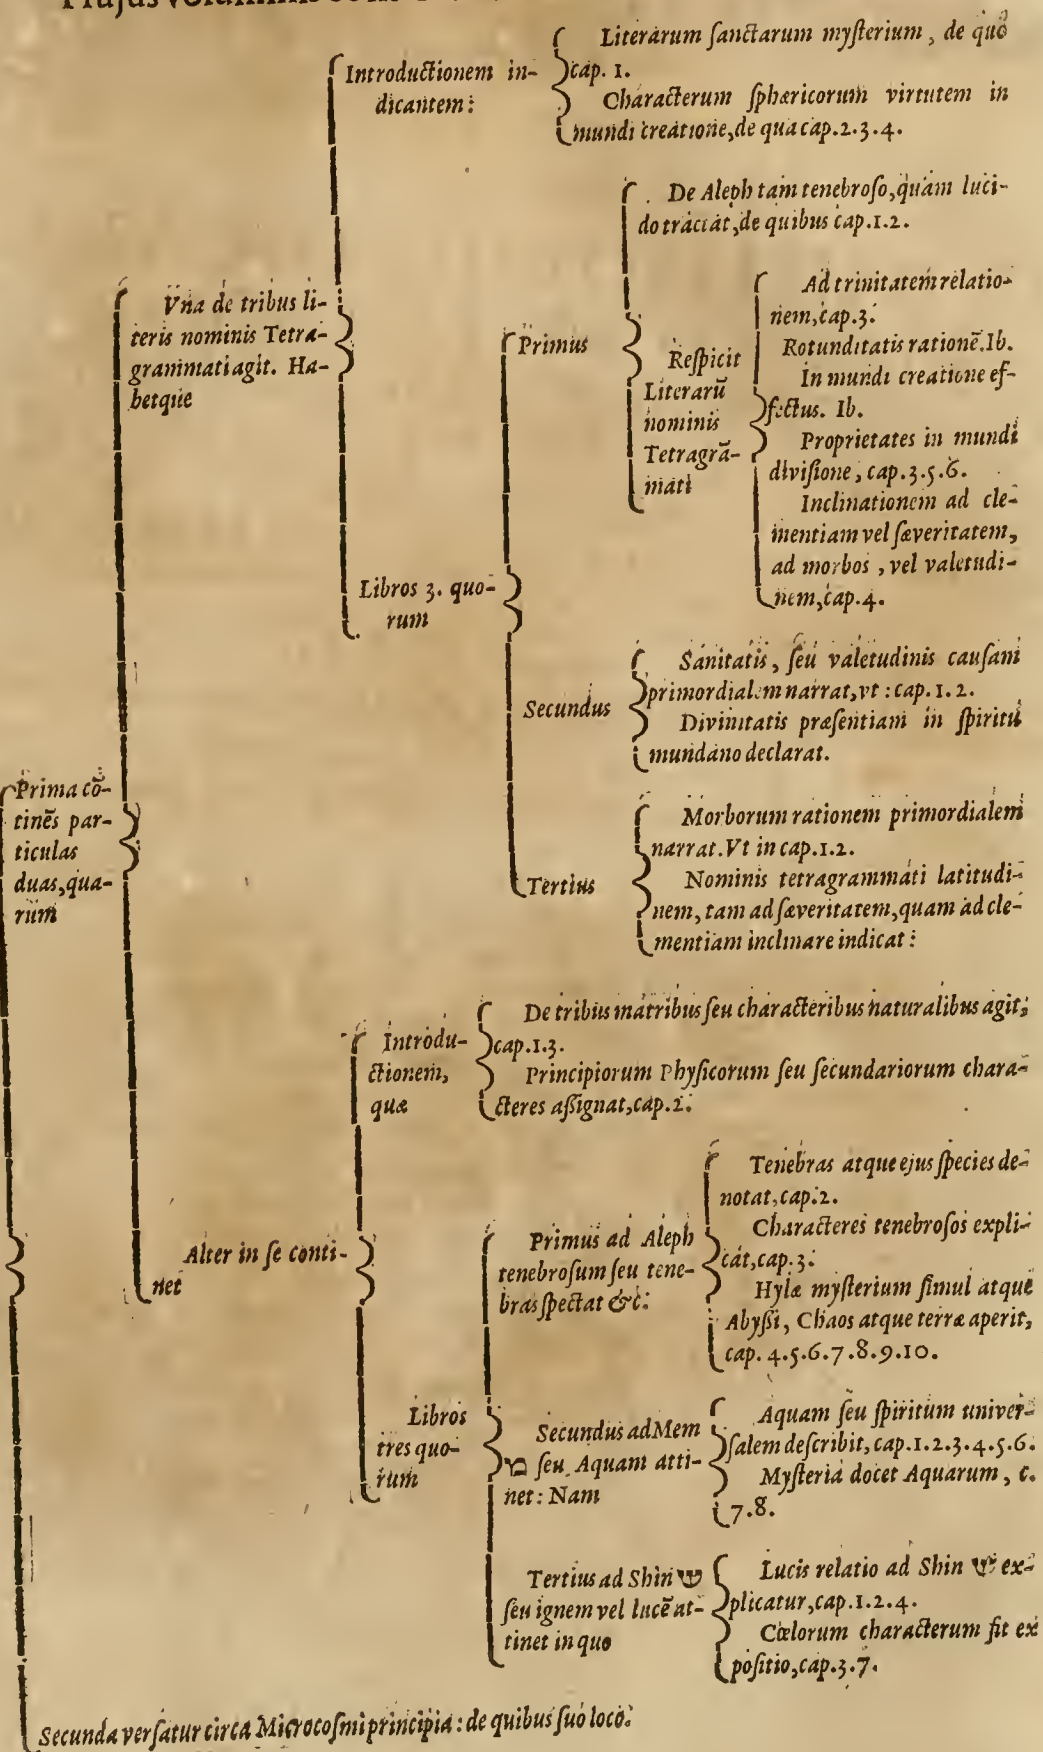 Hujus voluminis
Introductionem in-
dicantem:
Literarum ſanctarum myſterium, de quo
cap. 1.
Characterum ſphæricorum virtutem in
mundi creatione, de qua cap. 2. 3. 4.
Vna de tribus li-
teris nominis Tetra-
grammati agit. Ha-
betque
Libros 3. quo-
rum
Primus
De Aleph tam tenebroſo, quàm luci-
do tractat, de quibus cap. 1. 2.
Reſpicit
Literarū
nominis
Tetragrā-
mati
Ad trinitatem relatio-
nem, cap. 3.
Rotunditatis rationē. Ib.
In mundi creatione ef-
fectus. Ib.
Proprietates in mundi
diviſione, cap. 3. 5. 6.
Inclinationem ad cle-
mentiam vel ſæveritatem,
ad morbos, vel valetudi-
nem, cap. 4.
Secundus
Sanitatis, ſeu valetudinis cauſam
primordialem narrat, vt: cap. 1. 2.
Divinitatis præſentiam in ſpiritu
mundano declarat.
Tertius
Morborum rationem primordialem
narrat. Vt in cap. 1. 2.
Nominis tetragrammati latitudi-
nem, tam ad ſæveritatem, quam ad cle-
mentiam inclinare indicat:
Prima cō-
tinēs par-
ticulas
duas, qua-
rum
Alter in ſe conti-
net
Introdu-
ctionem,
quæ
De tribus matribus ſeu characteribus naturalibus agit,
cap. 1. 3.
Principiorum Phyſicorum ſeu ſecundariorum chara-
cteres aſſignat, cap. 2.
Libros
tres quo-
rum
Primus ad Aleph
tenebroſum ſeu tene-
bras ſpectat &c.
Tenebras atque ejus ſpecies de-
notat, cap. 2.
Characteres tenebroſos expli-
cat, cap. 3.
Hylæ myſterium ſimul atque
Abyſſi, Chaos atque terræ aperit,
cap. 4. 5. 6. 7. 8. 9. 10.
Secundus ad Mem
מ ſeu Aquam atti-
net: Nam
Aquam ſeu ſpiritum univer-
ſalem deſcribit, cap. 1. 2. 3. 4. 5. 6.
Myſteria docet Aquarum, c.
7. 8.
Tertius ad Shin ש
ſeu ignem vel lucē at-
tinet in quo
Lucis relatio ad Shin ש ex-
plicatur, cap. 1. 2. 4.
Cœlorum characterum fit ex
poſitio, cap. 3. 7.
Secunda verſatur circa Microcoſmi principia: de quibus ſuo loco.